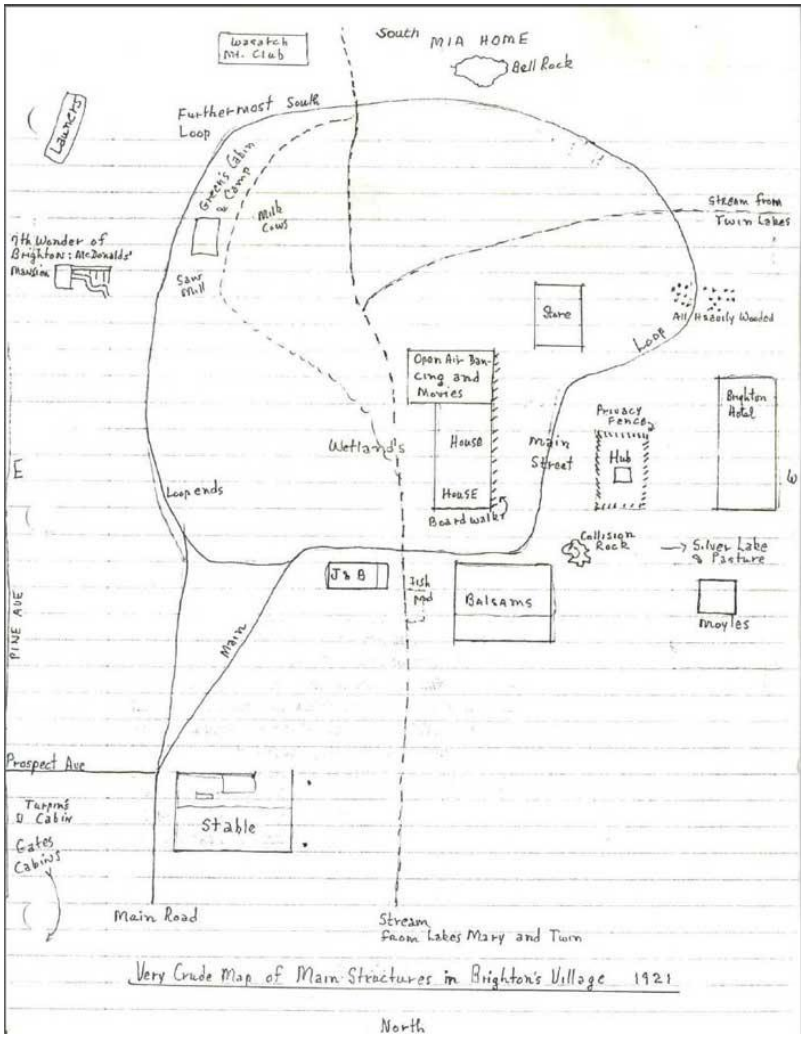 South
MIA HOME
Wasatch
Mt. Club
Bell Rock
Launers
Furthermost South
Loop
Green's Cabin
& Camp
Milk
Cows
Stream from
Twin Lakes
7th Wonder of
Brighton: McDonalds'
Mansion
Saw
Mill
Store
All Heavily Wooded
Loop
Open Air Dan-
cing and
Movies
Brighton
Hotel
Privacy
Fence
Wetland's
House
Main
Street
Hub
E
W
Loop ends
House
Board walk
Collision
Rock
→ Silver Lake
& Pasture
J & B
Fish
pond
BALSAMS
Moyles
PINE AVE
Main
Prospect Ave
Cabin
Stable
Gates
Cabins
Main Road
Stream
from Lakes Mary and Twin
Very Crude Map of Main Structures in Brighton's Village 1921
North